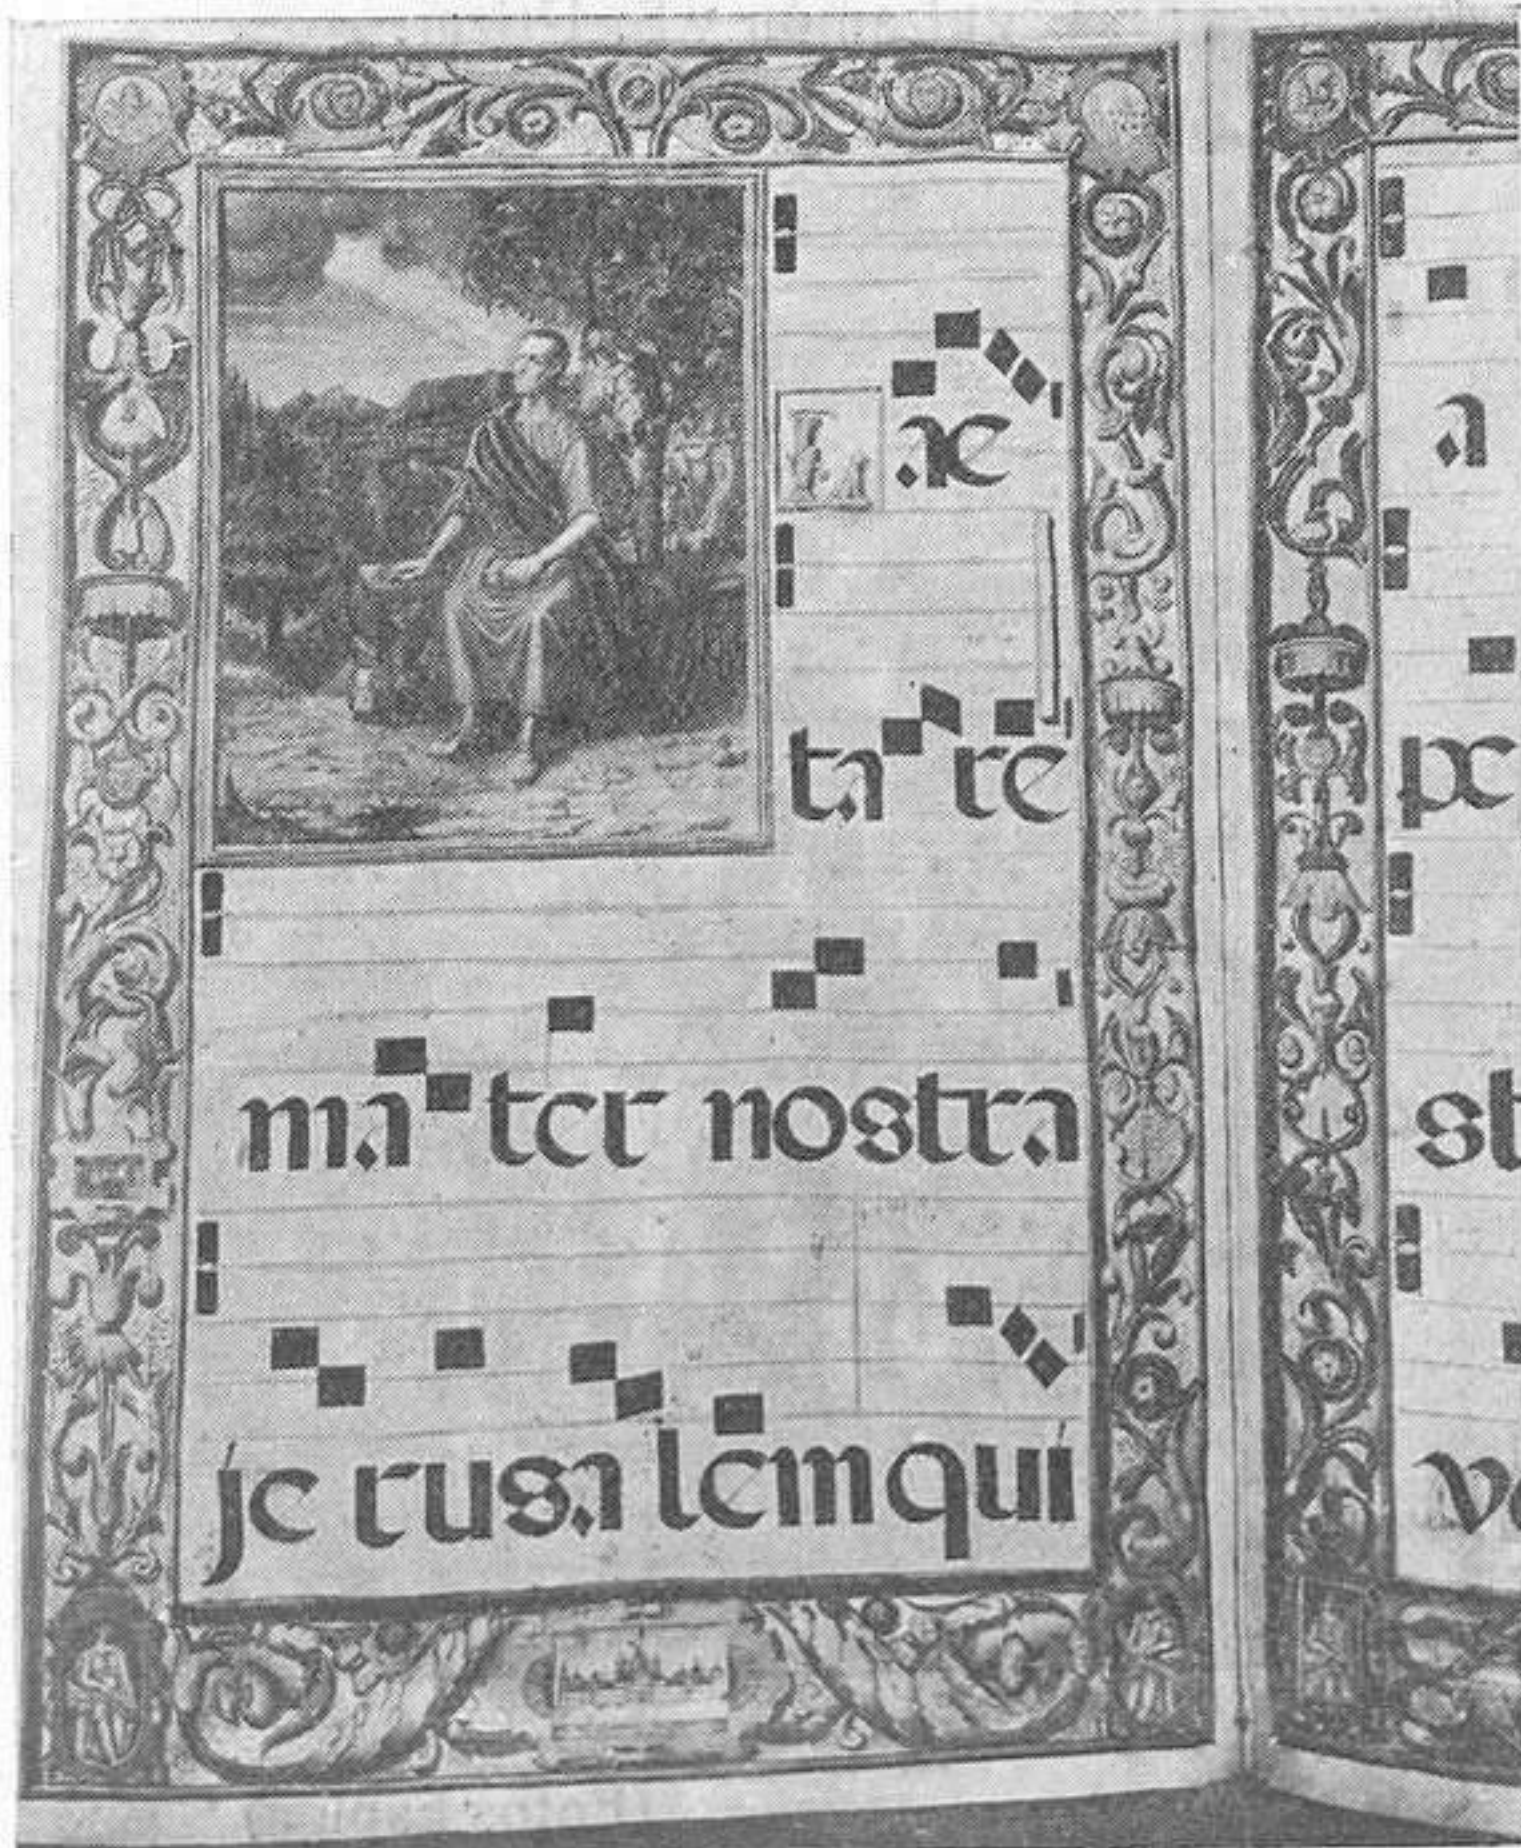 Lae
ta re
ma ter nostra
je rusa lem qui
a
pe
st
ve